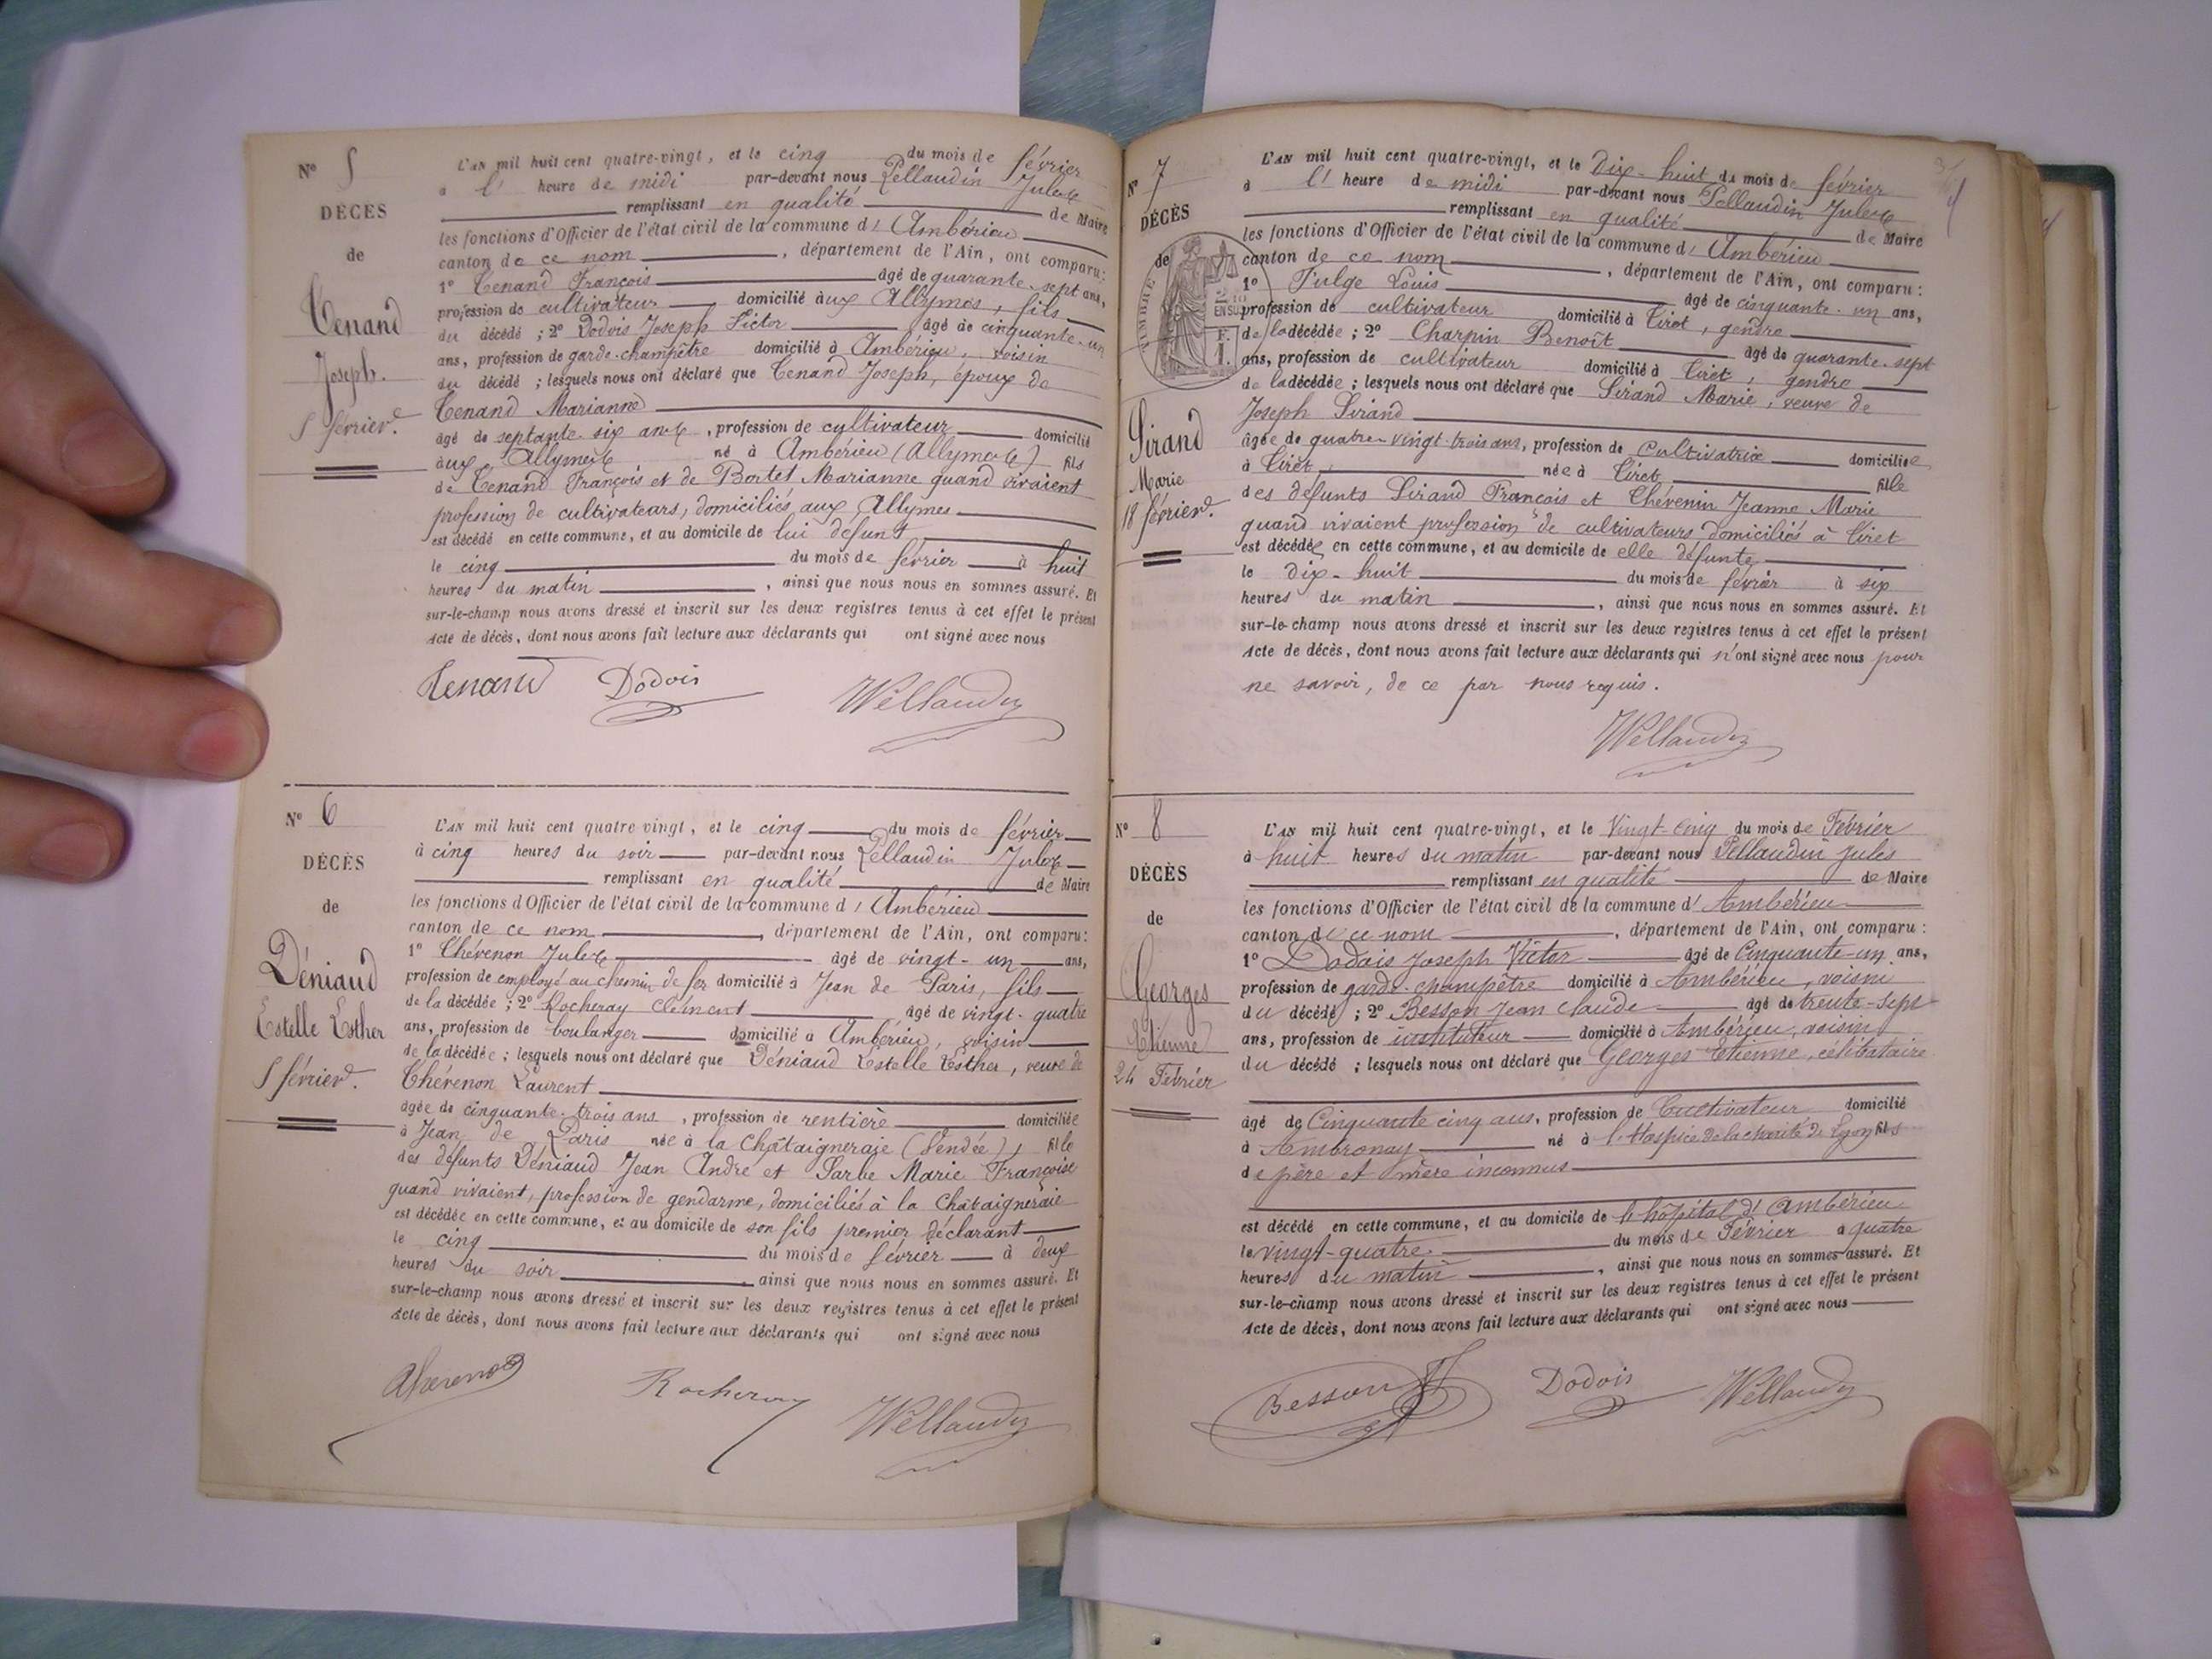 N° 5
DÉCÈS
de
Tenand
Joseph.
5 février.
L'AN mil huit cent quatre-vingt, et le cinq du mois de février
à l' heure de midi par-devant nous Pellaudin Jules
remplissant en qualité de Maire
les fonctions d'Officier de l'état civil de la commune d' Ambérieu
canton de ce nom, département de l'Ain, ont comparu:
1° Tenand François âgé de quarante-sept ans,
profession de cultivateur, domicilié aux Allymes, fils
du décédé; 2° Dodois Joseph Victor âgé de cinquante-un
ans, profession de garde-champêtre domicilié à Ambérieu, voisin
du décédé; lesquels nous ont déclaré que Tenand Joseph, époux de
Tenand Marianne
âgé de septante-six ans, profession de cultivateur domicilié
aux Allymes né à Ambérieu (Allymes) fils
de Tenand François et de Bortet Marianne quand vivaient
profession de cultivateurs, domiciliés aux Allymes
est décédé en cette commune, et au domicile de lui défunt
le cinq du mois de février à huit
heures du matin, ainsi que nous nous en sommes assuré. Et
sur-le-champ nous avons dressé et inscrit sur les deux registres tenus à cet effet le présent
Acte de décès, dont nous avons fait lecture aux déclarants qui ont signé avec nous
Tenand Dodois
N° 6
DÉCÈS
de
Déniaud
Estelle Esther
5 février.
L'AN mil huit cent quatre vingt, et le cinq du mois de février
à cinq heures du soir par-devant nous Pellaudin Jules
remplissant en qualité de Maire
les fonctions d'Officier de l'état civil de la commune d' Ambérieu
canton de ce nom, département de l'Ain, ont comparu:
1° Chévenon Jules âgé de vingt-un ans,
profession de employé au chemin de fer domicilié à Jean de Paris, fils
de la décédée; 2° Rocheray Clément âgé de vingt-quatre
ans, profession de boulanger domicilié à Ambérieu, voisin
de la décédée; lesquels nous ont déclaré que Déniaud Estelle Esther, veuve de
Chévenon Laurent
âgée de cinquante-trois ans, profession de rentière domiciliée
à Jean de Paris née à la Châtaigneraie (Vendée), fille
des défunts Déniaud Jean André et Sarbe Marie Françoise
quand vivaient, profession de gendarme, domiciliés à la Châtaigneraie
est décédée en cette commune, et au domicile de son fils premier déclarant
le cinq du mois de février à deux
heures du soir, ainsi que nous nous en sommes assuré. Et
sur-le-champ nous avons dressé et inscrit sur les deux registres tenus à cet effet le présent
Acte de décès, dont nous avons fait lecture aux déclarants qui ont signé avec nous
Rocheray
N° 7
DÉCÈS
de
TIMBRE
EN SUS
F.
1.
Sirand
Marie
18 février.
L'AN mil huit cent quatre-vingt, et le Dix-huit du mois de février
à l' heure de midi par-devant nous Pellaudin Jules
remplissant en qualité de Maire
les fonctions d'Officier de l'état civil de la commune d' Ambérieu
canton de ce nom, département de l'Ain, ont comparu:
1° Fulge Louis âgé de cinquante-un ans,
profession de cultivateur domicilié à Tiret, gendre
de la décédée; 2° Charpin Benoît âgé de quarante-sept
ans, profession de cultivateur domicilié à Tiret, gendre
de la décédée; lesquels nous ont déclaré que Sirand Marie, veuve de
Joseph Sirand
âgée de quatre-vingt-trois ans, profession de cultivatrice domiciliée
à Tiret née à Tiret fille
des défunts Sirand François et Chévenin Jeanne Marie
quand vivaient professions de cultivateurs domiciliés à Tiret
est décédée en cette commune, et au domicile de elle défunte
le dix-huit du mois de février à six
heures du matin, ainsi que nous nous en sommes assuré. Et
sur-le-champ nous avons dressé et inscrit sur les deux registres tenus à cet effet le présent
Acte de décès, dont nous avons fait lecture aux déclarants qui n'ont signé avec nous pour
ne savoir, de ce par nous requis.
N° 8
DÉCÈS
de
Georges
Etienne
24 Février
L'AN mil huit cent quatre-vingt, et le Vingt-cinq du mois de Février
à huit heures du matin par-devant nous Pellaudin Jules
remplissant en qualité de Maire
les fonctions d'Officier de l'état civil de la commune d' Ambérieu
canton de ce nom, département de l'Ain, ont comparu:
1° Dodois Joseph Victor âgé de Cinquante-un ans,
profession de garde-champêtre domicilié à Ambérieu, voisin
du décédé; 2° Besson Jean Claude âgé de trente-sept
ans, profession de instituteur domicilié à Ambérieu, voisin
du décédé; lesquels nous ont déclaré que Georges Etienne, célibataire
âgé de Cinquante cinq ans, profession de Cultivateur domicilié
à Ambronay né à l'Hospice de la charité de Lyon fils
de père et mère inconnus
est décédé en cette commune, et au domicile de l'hôpital d'Ambérieu
le vingt-quatre du mois de Février à quatre
heures du matin, ainsi que nous nous en sommes assuré. Et
sur-le-champ nous avons dressé et inscrit sur les deux registres tenus à cet effet le présent
Acte de décès, dont nous avons fait lecture aux déclarants qui ont signé avec nous
Besson Dodois